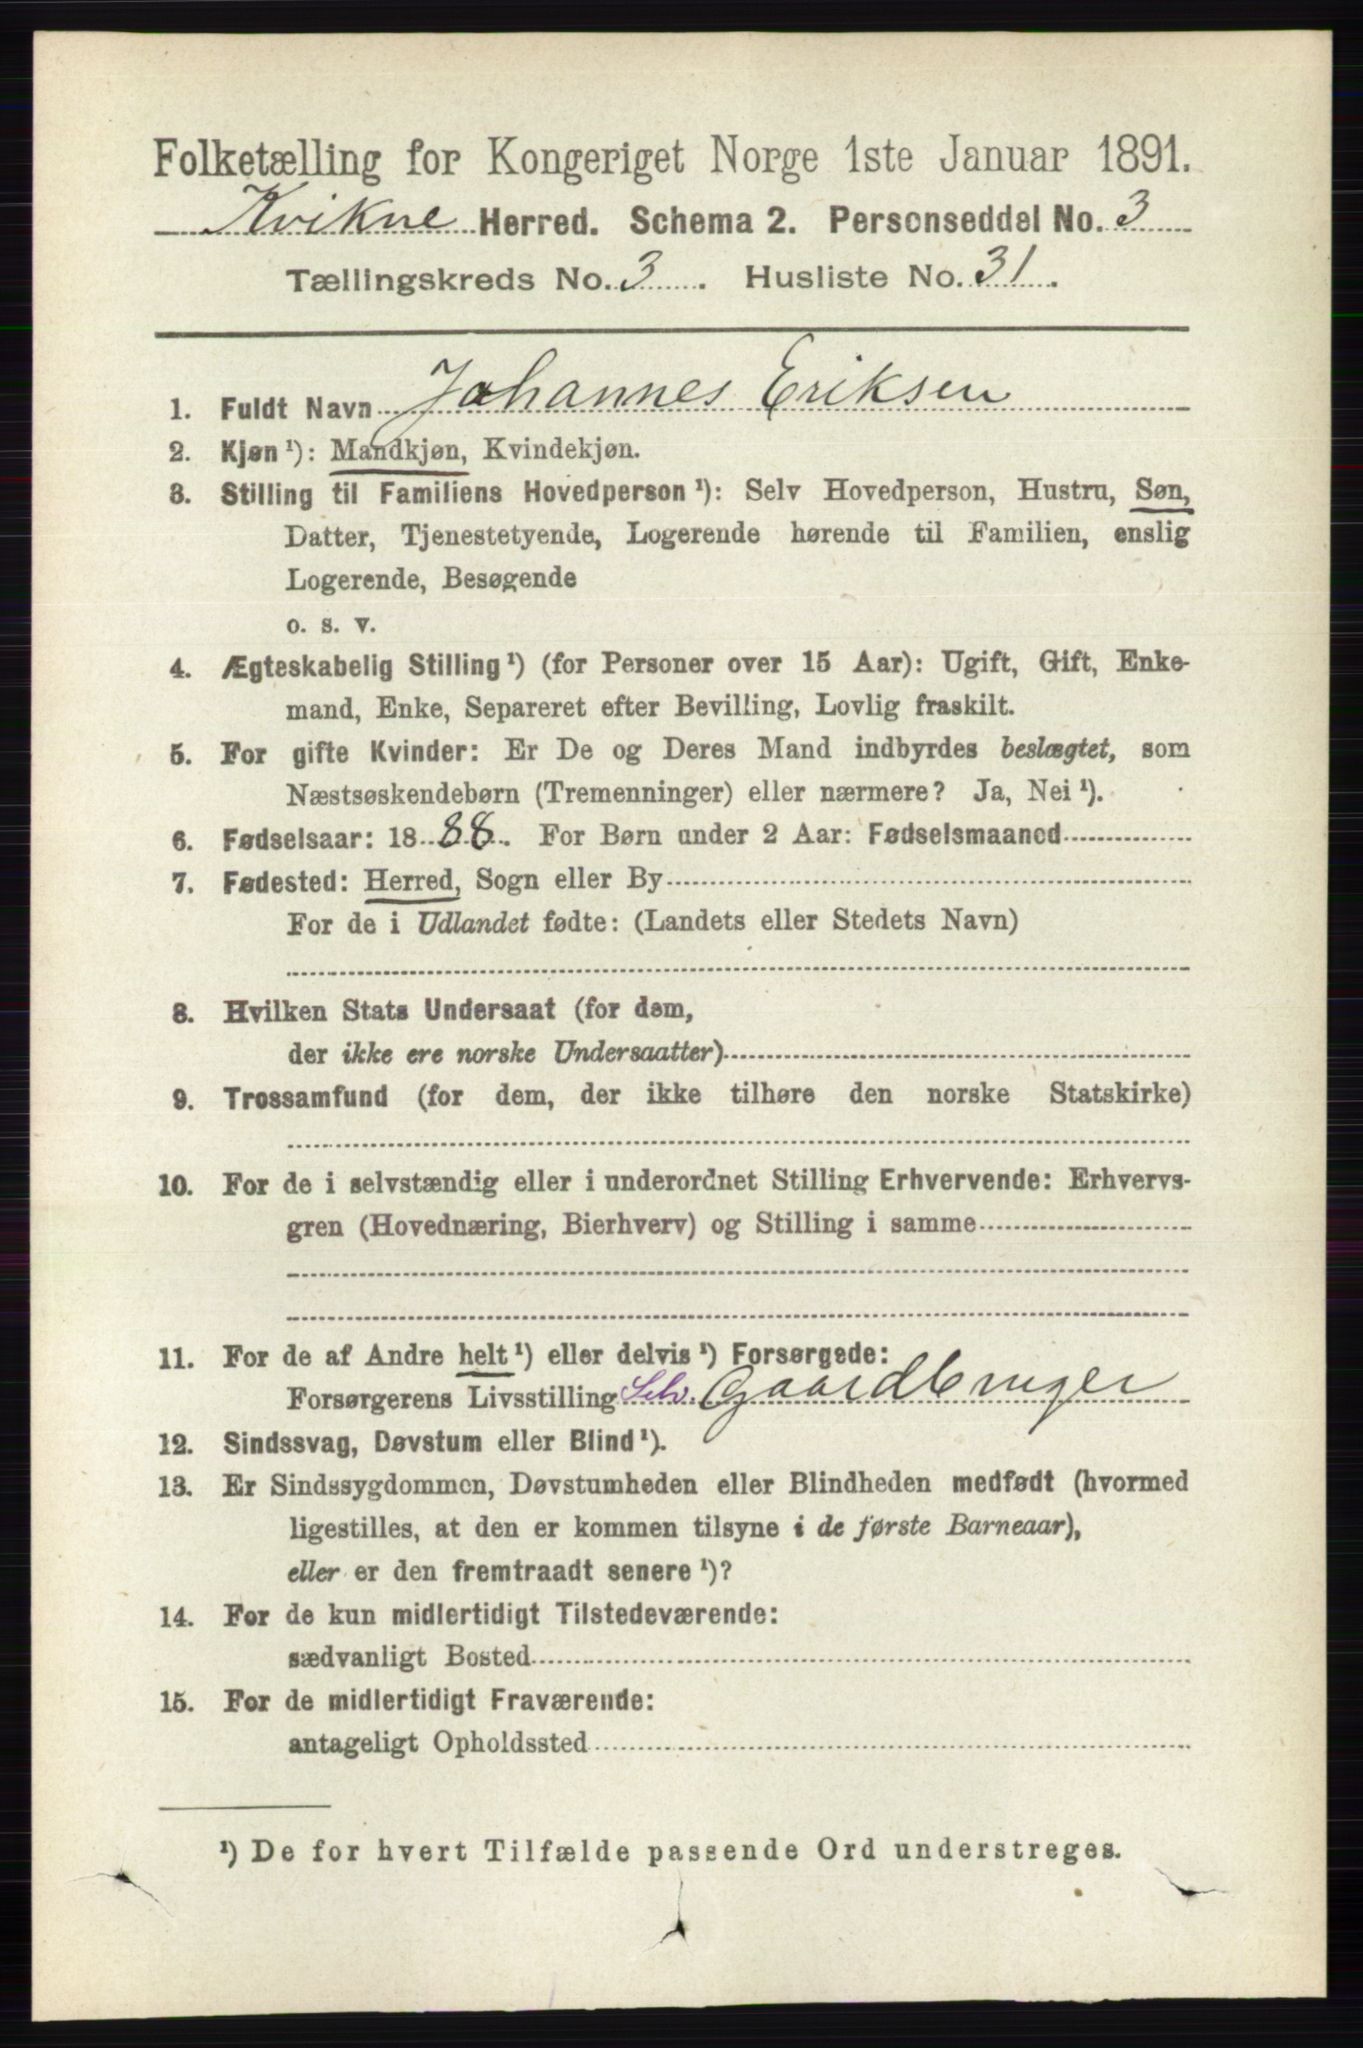 Folketælling for Kongeriget Norge 1ste Januar 1891.
Kvikne Herred. Schema 2. Personseddel No. 3
Tællingskreds No. 3. Husliste No. 31.
1. Fuldt Navn Johannes Eriksen
2. Kjøn ¹): Mandkjøn, Kvindekjøn.
3. Stilling til Familiens Hovedperson ¹): Selv Hovedperson, Hustru, Søn,
Datter, Tjenestetyende, Logerende hørende til Familien, enslig
Logerende, Besøgende
o. s. v.
4. Ægteskabelig Stilling ¹) (for Personer over 15 Aar): Ugift, Gift, Enke-
mand, Enke, Separeret efter Bevilling, Lovlig fraskilt.
5. For gifte Kvinder: Er De og Deres Mand indbyrdes beslægtet, som
Næstsøskendebørn (Tremenninger) eller nærmere? Ja, Nei ¹).
6. Fødselsaar: 1888. For Børn under 2 Aar: Fødselsmaaned
7. Fødested: Herred, Sogn eller By
For de i Udlandet fødte: (Landets eller Stedets Navn)
8. Hvilken Stats Undersaat (for dem,
der ikke ere norske Undersaatter)
9. Trossamfund (for dem, der ikke tilhøre den norske Statskirke)
10. For de i selvstændig eller i underordnet Stilling Erhvervende: Erhvervs-
gren (Hovednæring, Bierhverv) og Stilling i samme
11. For de af Andre helt ¹) eller delvis ¹) Forsørgede:
Forsørgerens Livsstilling Selv. Gaardbruger
12. Sindssvag, Døvstum eller Blind ¹).
13. Er Sindssygdommen, Døvstumheden eller Blindheden medfødt (hvormed
ligestilles, at den er kommen tilsyne i de første Barneaar),
eller er den fremtraadt senere ¹)?
14. For de kun midlertidigt Tilstedeværende:
sædvanligt Bosted
15. For de midlertidigt Fraværende:
antageligt Opholdssted
¹) De for hvert Tilfælde passende Ord understreges.